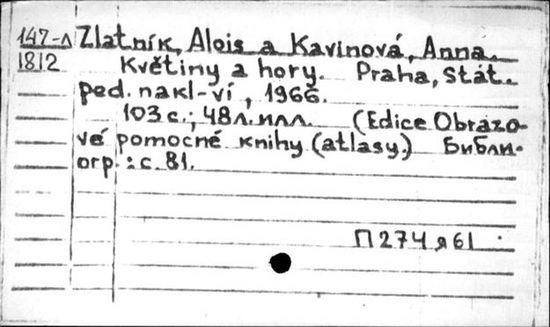 147-Л Zlatník, Alois a Kavinová, Anna.
1812 Květiny a hory. Praha, Stát.
ped. nakl-ví, 1966.
103 с.; 48 л. илл. (Edice Obrazo-
vé pomocné knihy (atlasy.) Библи-
огр.: с. 81.
П274я61